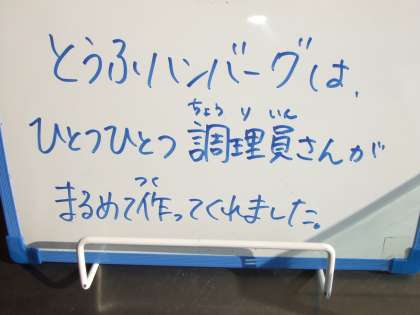 とうふハンバーグは、
ひとつひとつ調理員さんが
ちょうりいん
まるめて作ってくれました。
つく